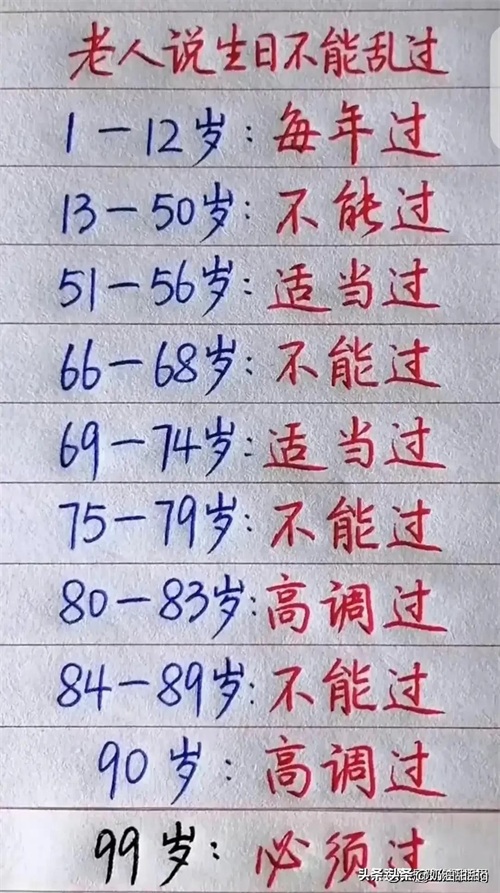 老人说生日不能乱过
1－12岁：每年过
13－50岁：不能过
51－56岁：适当过
66－68岁：不能过
69－74岁：适当过
75－79岁：不能过
80－83岁：高调过
84－89岁：不能过
90岁：高调过
99岁：必须过
头条